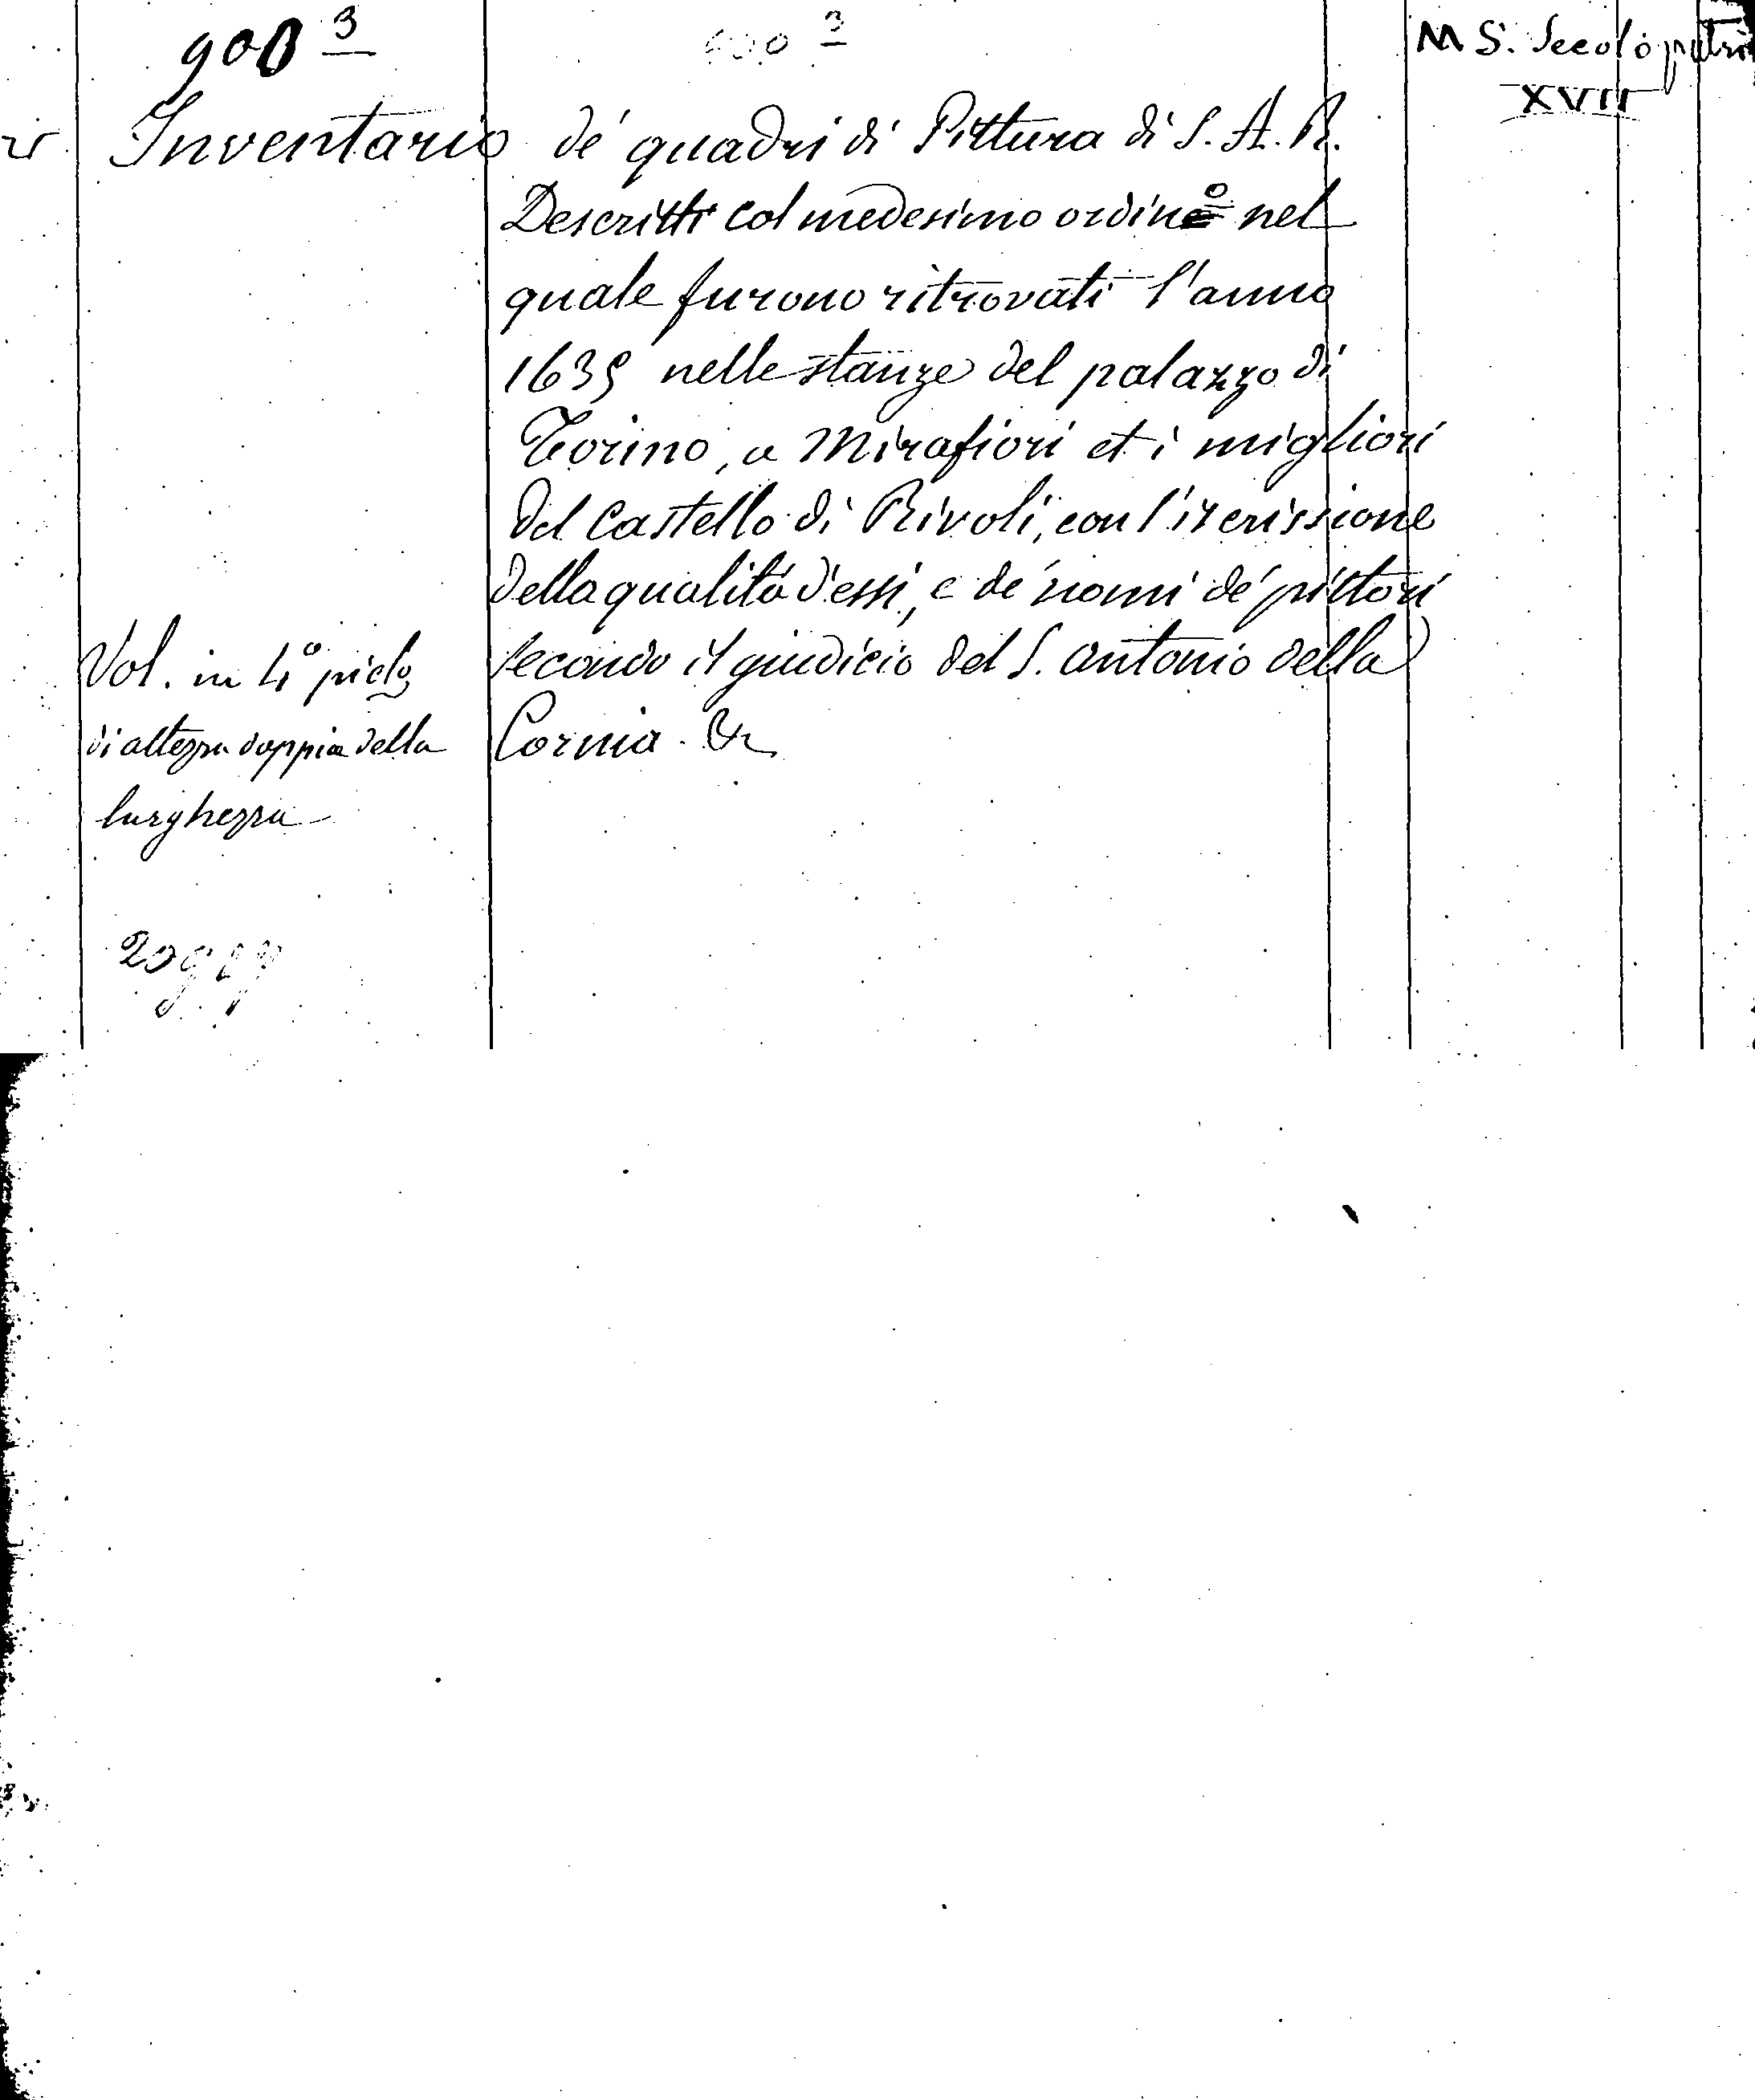 900 3
MS. Secolo
XVII
Inventario dé quadri di Pittura di S. A. R.
Descritti col medesimo ordino nel
quale furono ritrovati l'anno
1635 nelle stanze del palazzo di
Torino, a Mirafiori et i migliori
del Castello di Rivoli, con l'iscrissione
della qualità d'essi, e dé nomi dé pittori
secondo il giudicio del S. Antonio della
Cornia. &
Vol. in 4° piclo
di altezza doppia della
larghezza